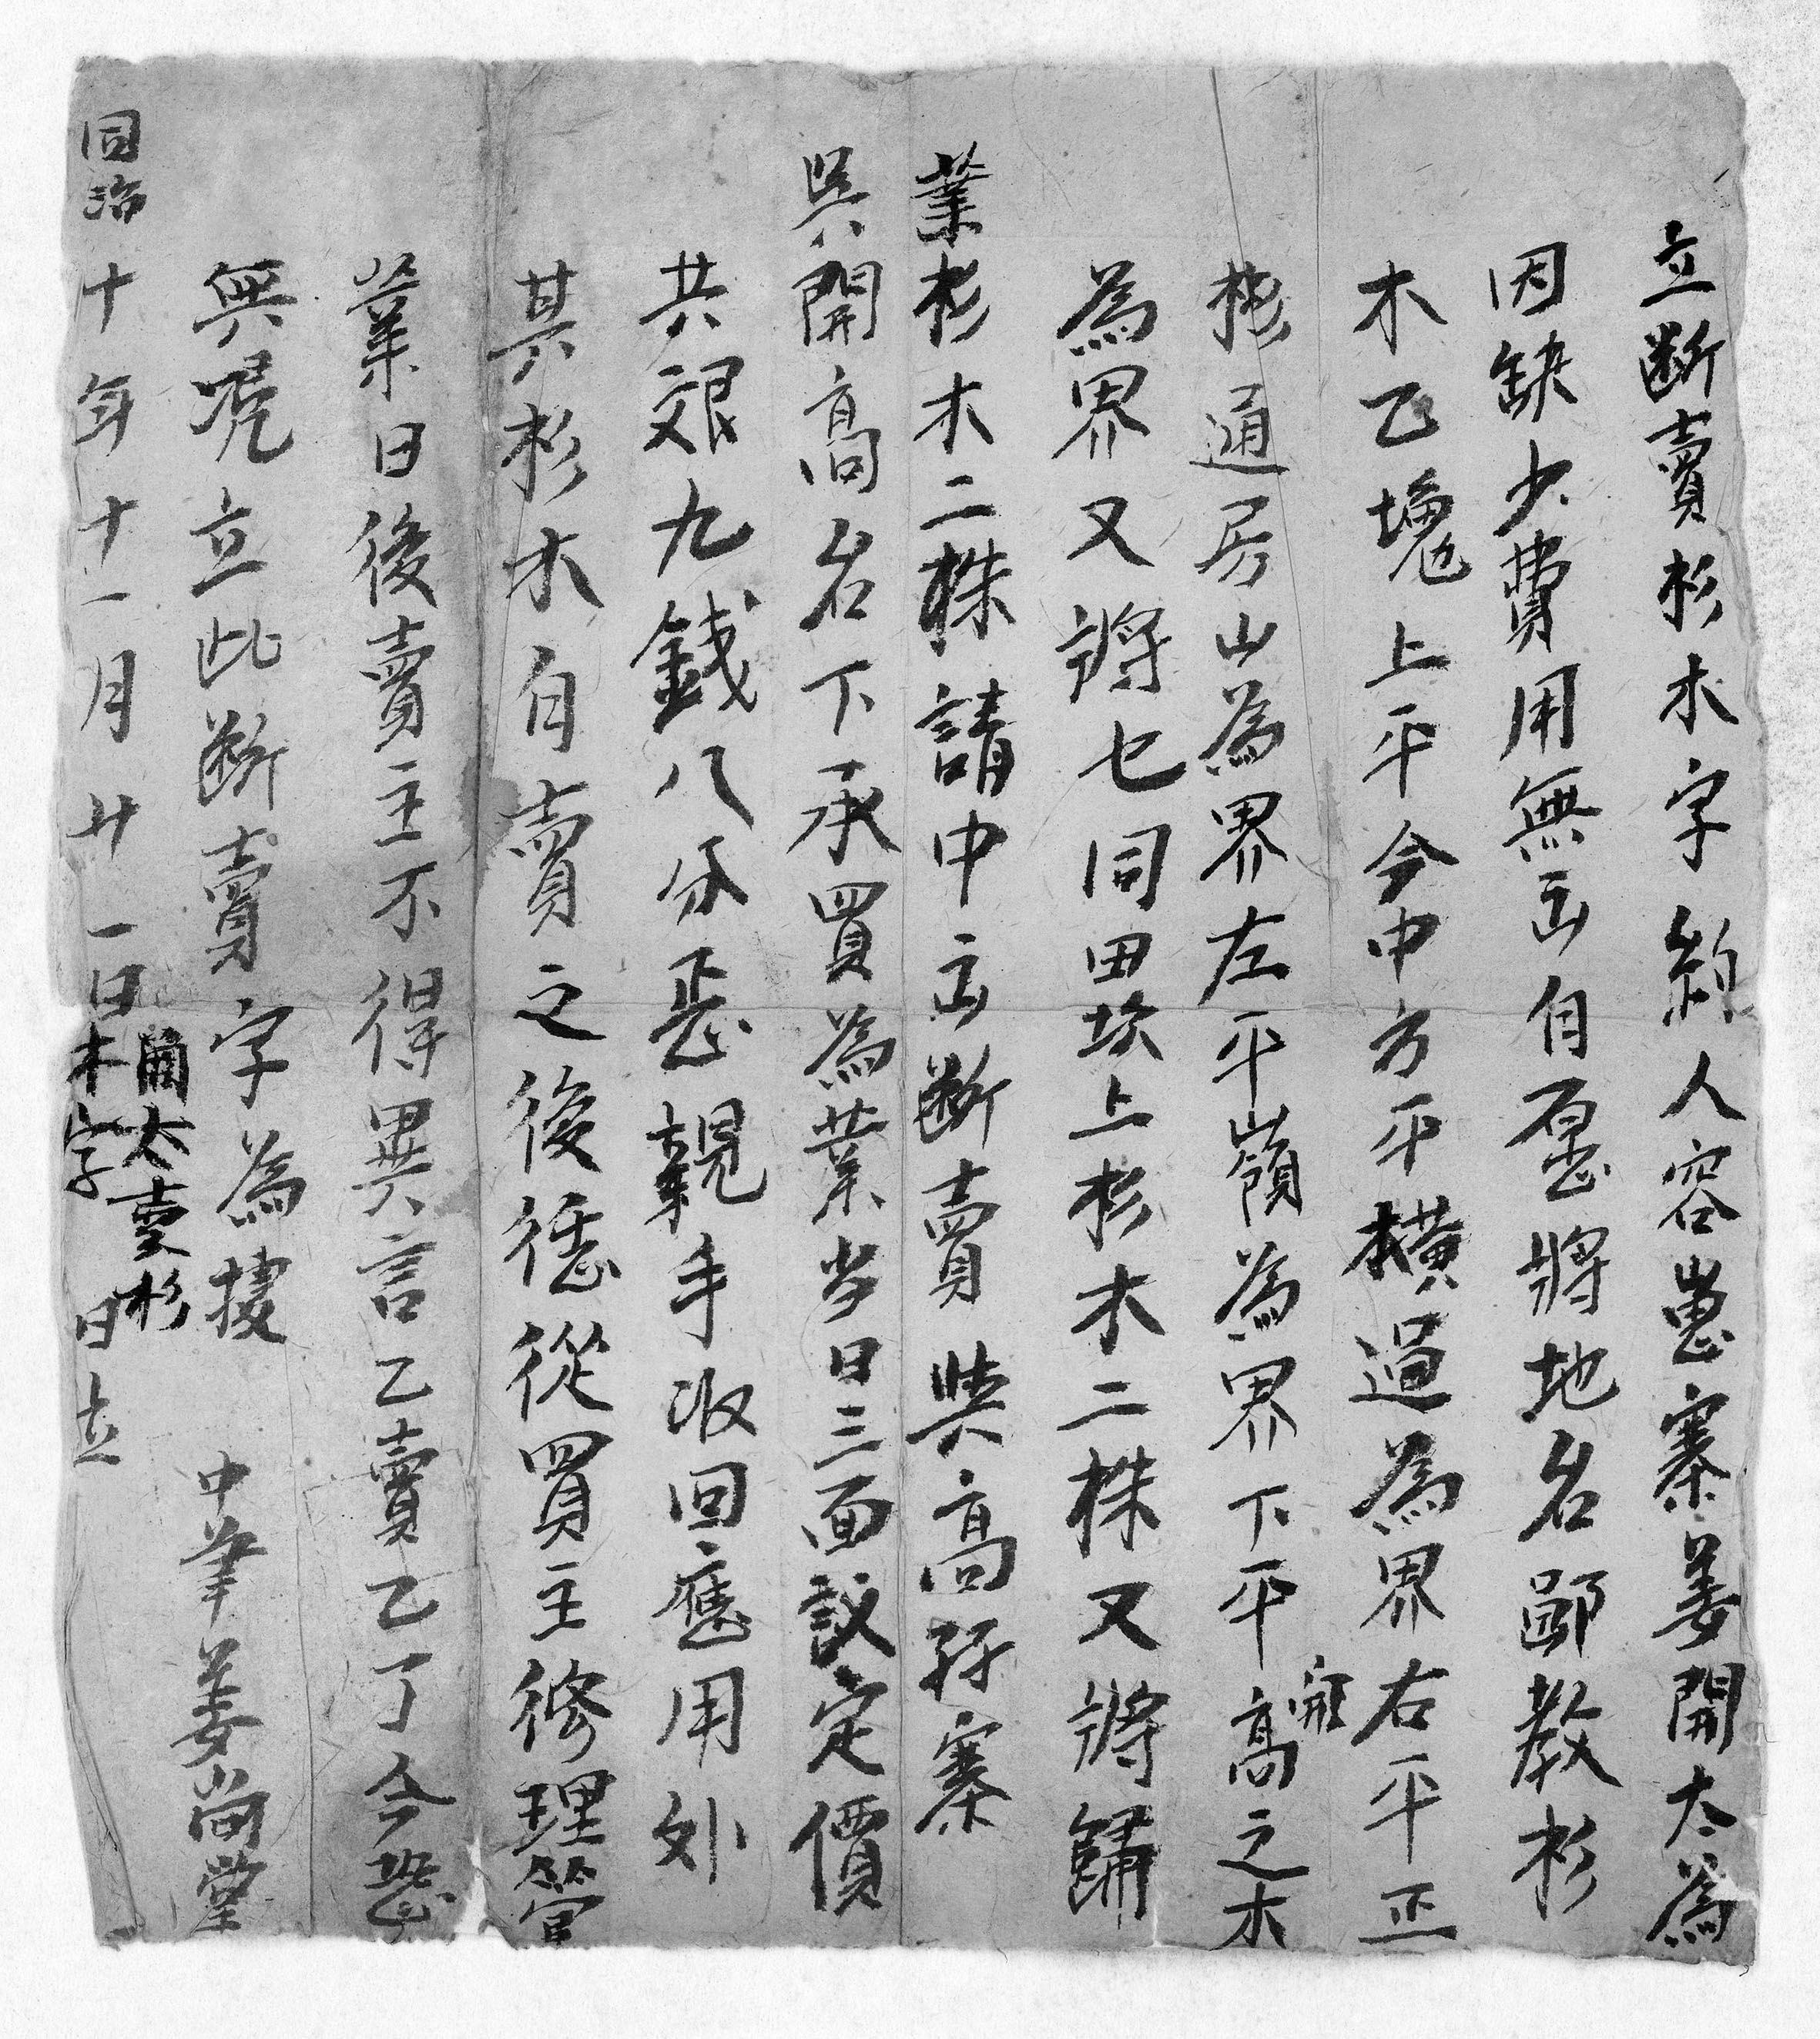 立断賣杉木字約人容嵩寨姜開太為
因缺少費用無出自愿將地名鄙教杉
木乙塊上平今中方平横過為界右平正
彬通房山為界左平嶺為界下平高之木
為界又將七同田坎上杉木二株又將歸
業杉木二株請中出断賣與高孖寨
吳開高名下承買為業当日三面議定價
共艮九錢八分正親手收回應用外
其杉木自賣之後凴從買主修理管
業日後賣主不得異言乙賣乙了今恐
無凴立此断賣字為據
中筆姜尚堂
開太賣杉
木字
同治十年十一月廿一日 日立